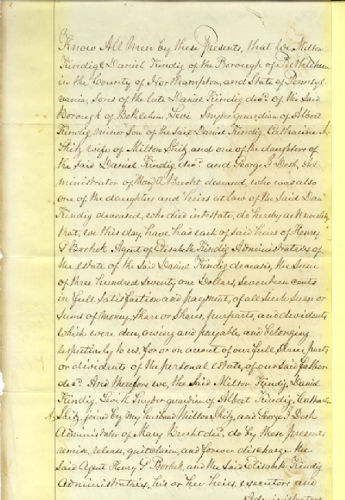 Know All Men by these Presents, that we Milton
Kindig & Daniel Kindig of the Borough of Bethlehem
in the County of Northampton, and State of Pennsyl
vania, Sons of the late Daniel Kindig decd. of the Said
Borough of Bethlehem, Levi Snyder guardian of Albert
Kindig minor Son of the Said Daniel Kindig, Catharine A.
wife of Milton and one of the daughters of
the Said Daniel Kindig decd. and George J. Desh, Ad
ministrator of Mary A. Brecht deceased, who was also
one of the daughters and heirs at law of the Said Dan'l
Kindig deceased, who died intestate, do hereby acknowledge
that, we this day, have had each of Said heirs of Henry
S. Borhek Agent of Elisabeth Kindig Administratrix of
the estate of the Said Daniel Kindig deceased, the Sum
of three hundred Seventy one Dollars, Seventeen cents
in full Satisfaction and payment, of all Such Sum or
Sums of money, Share or Shares, purparts, and dividents
which were due, owing and payable and belonging
respectively to us, for or on account of our full Share parts
or dividents of the personal estate, of our Said father
decd. And therefore we, the Said Milton Kindig, Daniel
Kindig, Levi Snyder guardian of Albert Kindig, Catharine
A. joined by my husband Milton and George J. Desh
Administrator of Mary Brecht decd., do by these presents
remise, release, quitclaim, and forever discharge the
Said Agent Henry S. Borhek, and the Said Elisabeth Kindig
Administratrix, his or her heirs, executors and